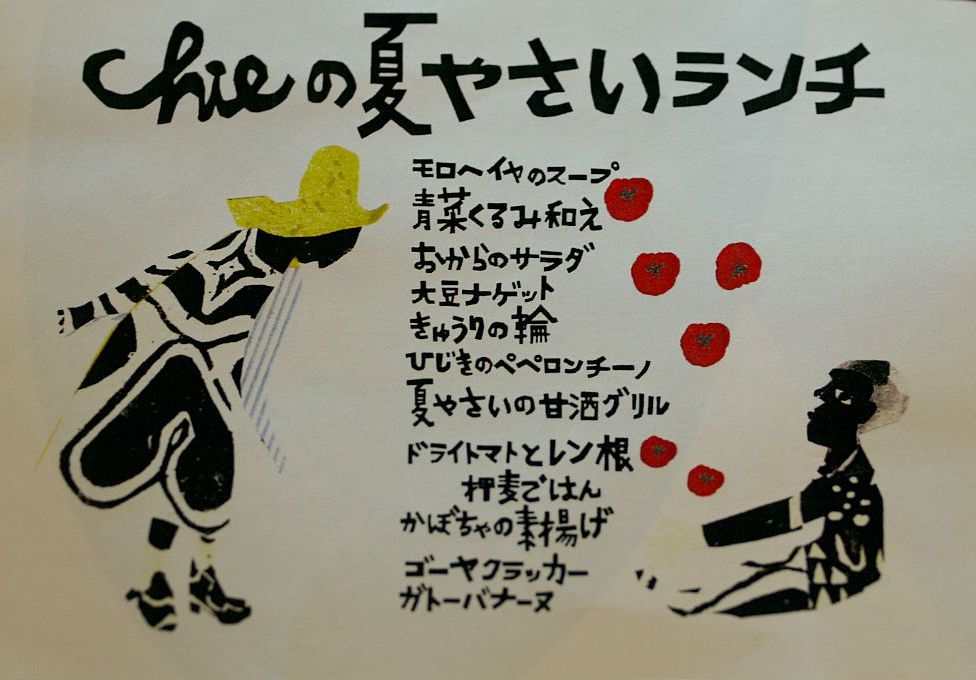 chieの夏やさいランチ
モロヘイヤのスープ
青菜くるみ和え
おからのサラダ
大豆ナゲット
きゅうりの輪
ひじきのペペロンチーノ
夏やさいの甘酒グリル
ドライトマトとレン根
押麦ごはん
かぼちゃの素揚げ
ゴーヤクラッカー
ガトーバナーヌ